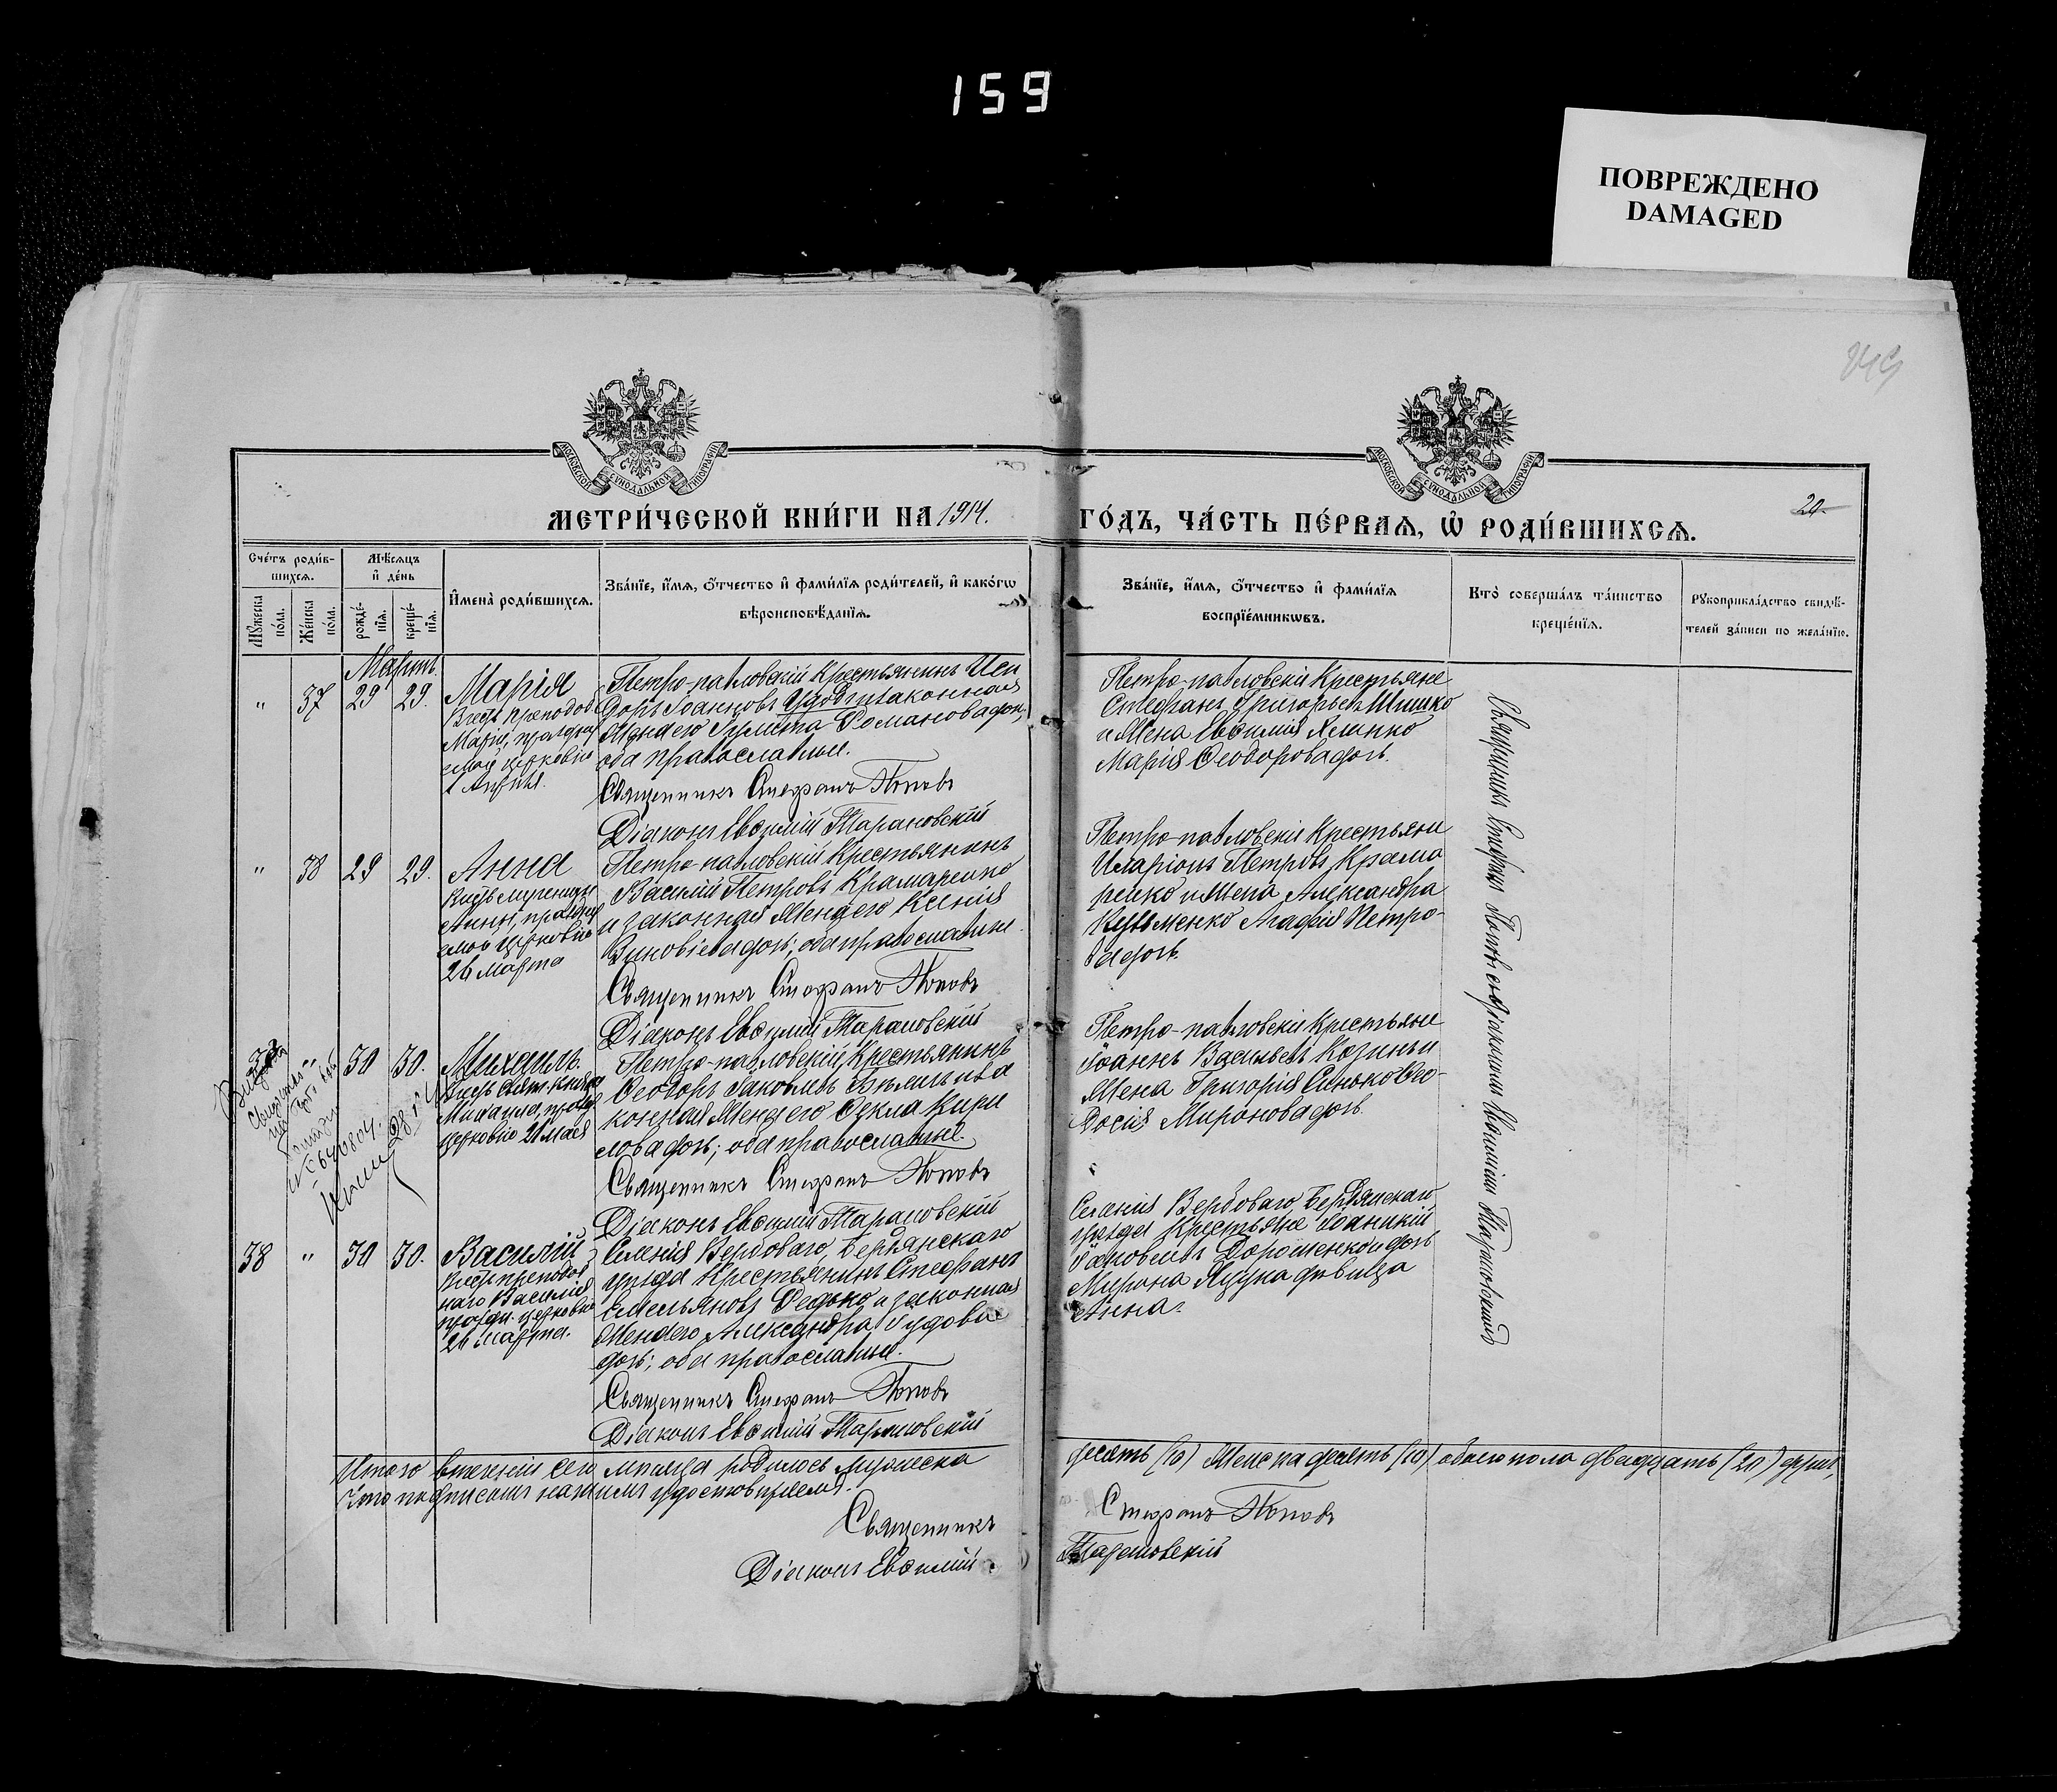 159
ПОВРЕЖДЕНО
DAMAGED
МОСКОВСКОЙ СѴНОДАЛЬНОЙ ТИПОГРАФІИ
МОСКОВСКОЙ СѴНОДАЛЬНОЙ ТИПОГРАФІИ
20
МЕТРИ́ЧЕСКОЙ КНИ́ГИ НА 1914.
ГО́ДЪ, ЧА́СТЬ ПЕ́РВАѦ, Ѡ҆ РОДИ́ВШИХСѦ.
Сче́тъ роди́в-
шихсѧ.
Мѣ́сѧцъ
и҆ де́нь
Мꙋ́жеска
по́ла.
Же́нска
по́ла.
рожде́-
нїѧ.
креще́-
нїѧ.
И҆мена̀ роди́вшихсѧ.
Зва́нїе, и҆́мѧ, ѻ҆́тчество и҆ фами́лїѧ роди́телей, и҆ како́гѡ
вѣроисповѣ́данїѧ.
Зва́нїе, и҆́мѧ, ѻ҆́тчество и҆ фами́лїѧ
воспрїе́мникѡвъ.
Кто̀ соверша́лъ та́инство
креще́нїѧ.
Рꙋкоприкла́дство свидѣ́-
телей за́писи по жела́нїю.
Мартъ.
" 37 29 29. Марія
Въ честь преподоб.
Маріи, праздну
емой церковію
1 Апрѣля.
Петро-павловскій Крестьянинъ Иси
доръ Іоанновъ и законная
жена его Романова дочь,
оба православные.
Священникъ Стефанъ Поповъ
Діаконъ Евѳимій Тарановскій
Петро-павловскіе Крестьяне
Стефанъ Григорьевъ Шишко
и жена Евѳимія Яценко
Марія Ѳеодорова дочь.
" 38 29 29. Анна
Въ честь мученицы
Анны, праздну
емой церковію
26 Марта
Петро-павловскій Крестьянинъ
Василій Петровъ Крамаренко
и законная жена его Ксенія
Зиновіева дочь; оба православные
Священникъ Стефанъ Поповъ
Діаконъ Евѳимій Тарановскій
Петро-павловскіе Крестьяне
Иларіонъ Петровъ Крама
ренко и жена Александра
Кузьменко Агафія Петро-
ва дочь.
37 " 30 30. Михаилъ.
Въ честь Свят. Князя
Михаила, праздн.
церковію 21 Мая
Петро-павловскій Крестьянинъ
Ѳеодоръ Іаковлевъ
конная жена его Ѳекла Кири
лова дочь; оба православные.
Священникъ Стефанъ Поповъ
Діаконъ Евѳимій Тарановскій
Петро-павловскіе Крестьяне
Іоаннъ Васильевъ Козинъ и
жена Григорія Синько Ѳео-
досія Миронова дочь.
38 " 30 30. Василій
Въ честь преподоб
наго Василія
праздн. церковію
26 марта.
Селенія Вербоваго, Бердянскаго
уѣзда Крестьянинъ Стефанъ
Емельяновъ Редько и законная
жена его Александра
дочь; оба православные.
Священникъ Стефанъ Поповъ
Діаконъ Евѳимій Тарановскій
Селенія Вербоваго, Бердянскаго
уѣзда Крестьяне Іоанникій
Іаковлевъ Дорошенко и дочь
Мирона Яцука дѣвица
Анна.
Священникъ Стефанъ Поповъ съ діакономъ Евѳиміемъ Тарановскимъ
Итого втеченіи сего мѣсяца родилось мужеска
десять (10) женска десять (10) обоего пола двадцать (20) душъ,
что подписомъ нашимъ удостовѣряемъ.
Священникъ Стефанъ Поповъ
Діаконъ Евѳимій Тарановскій